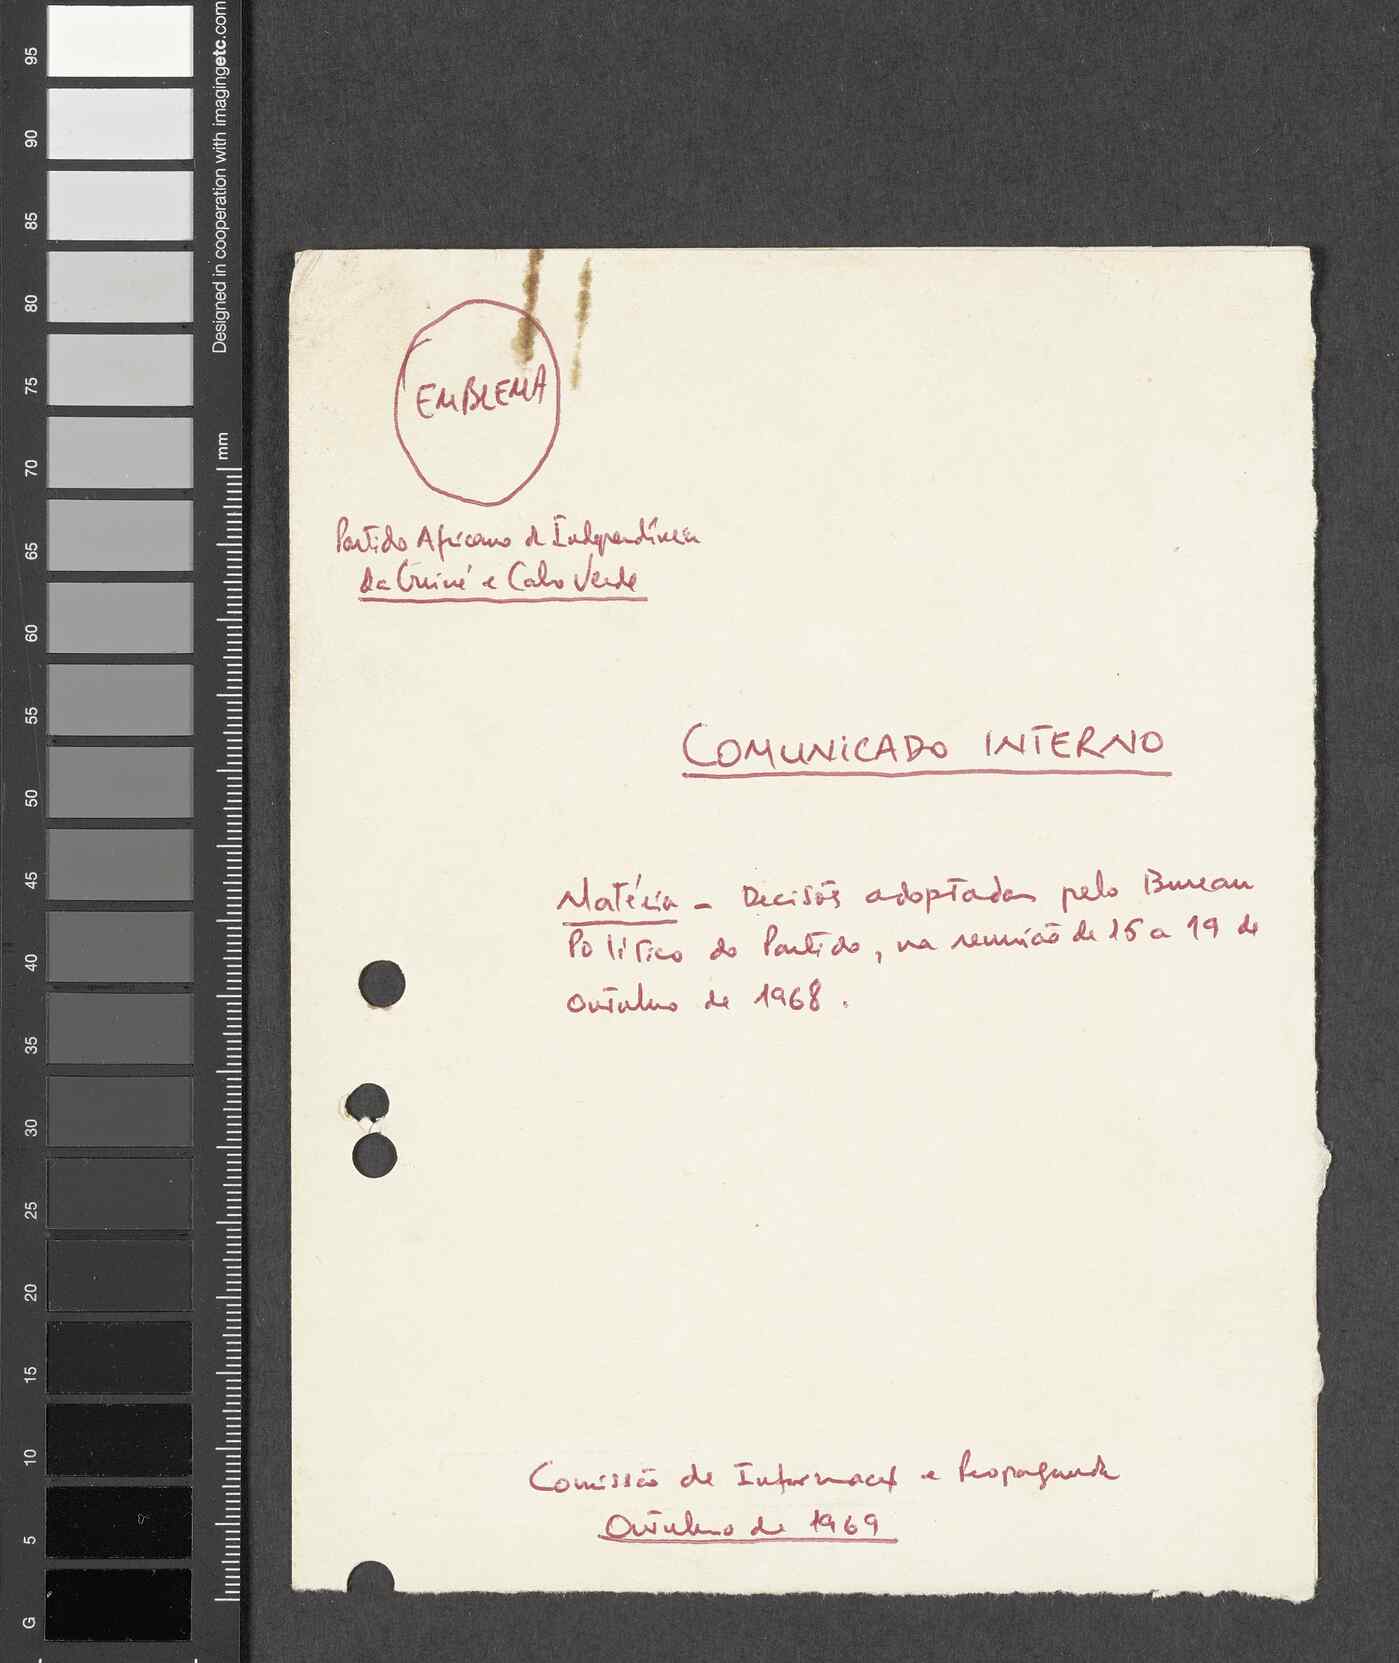 EMBLEMA
Partido Africano da Independência
da Guiné e Cabo Verde
COMUNICADO INTERNO
Matéria - Decisões adoptadas pelo Bureau
Político do Partido, na reunião de 15 a 19 de
Outubro de 1968.
Comissão de Informação e Propaganda
Outubro de 1969
Designed in cooperation with imagingetc.com
mm
95
90
85
80
75
70
65
60
55
50
45
40
35
30
25
20
15
10
5
G